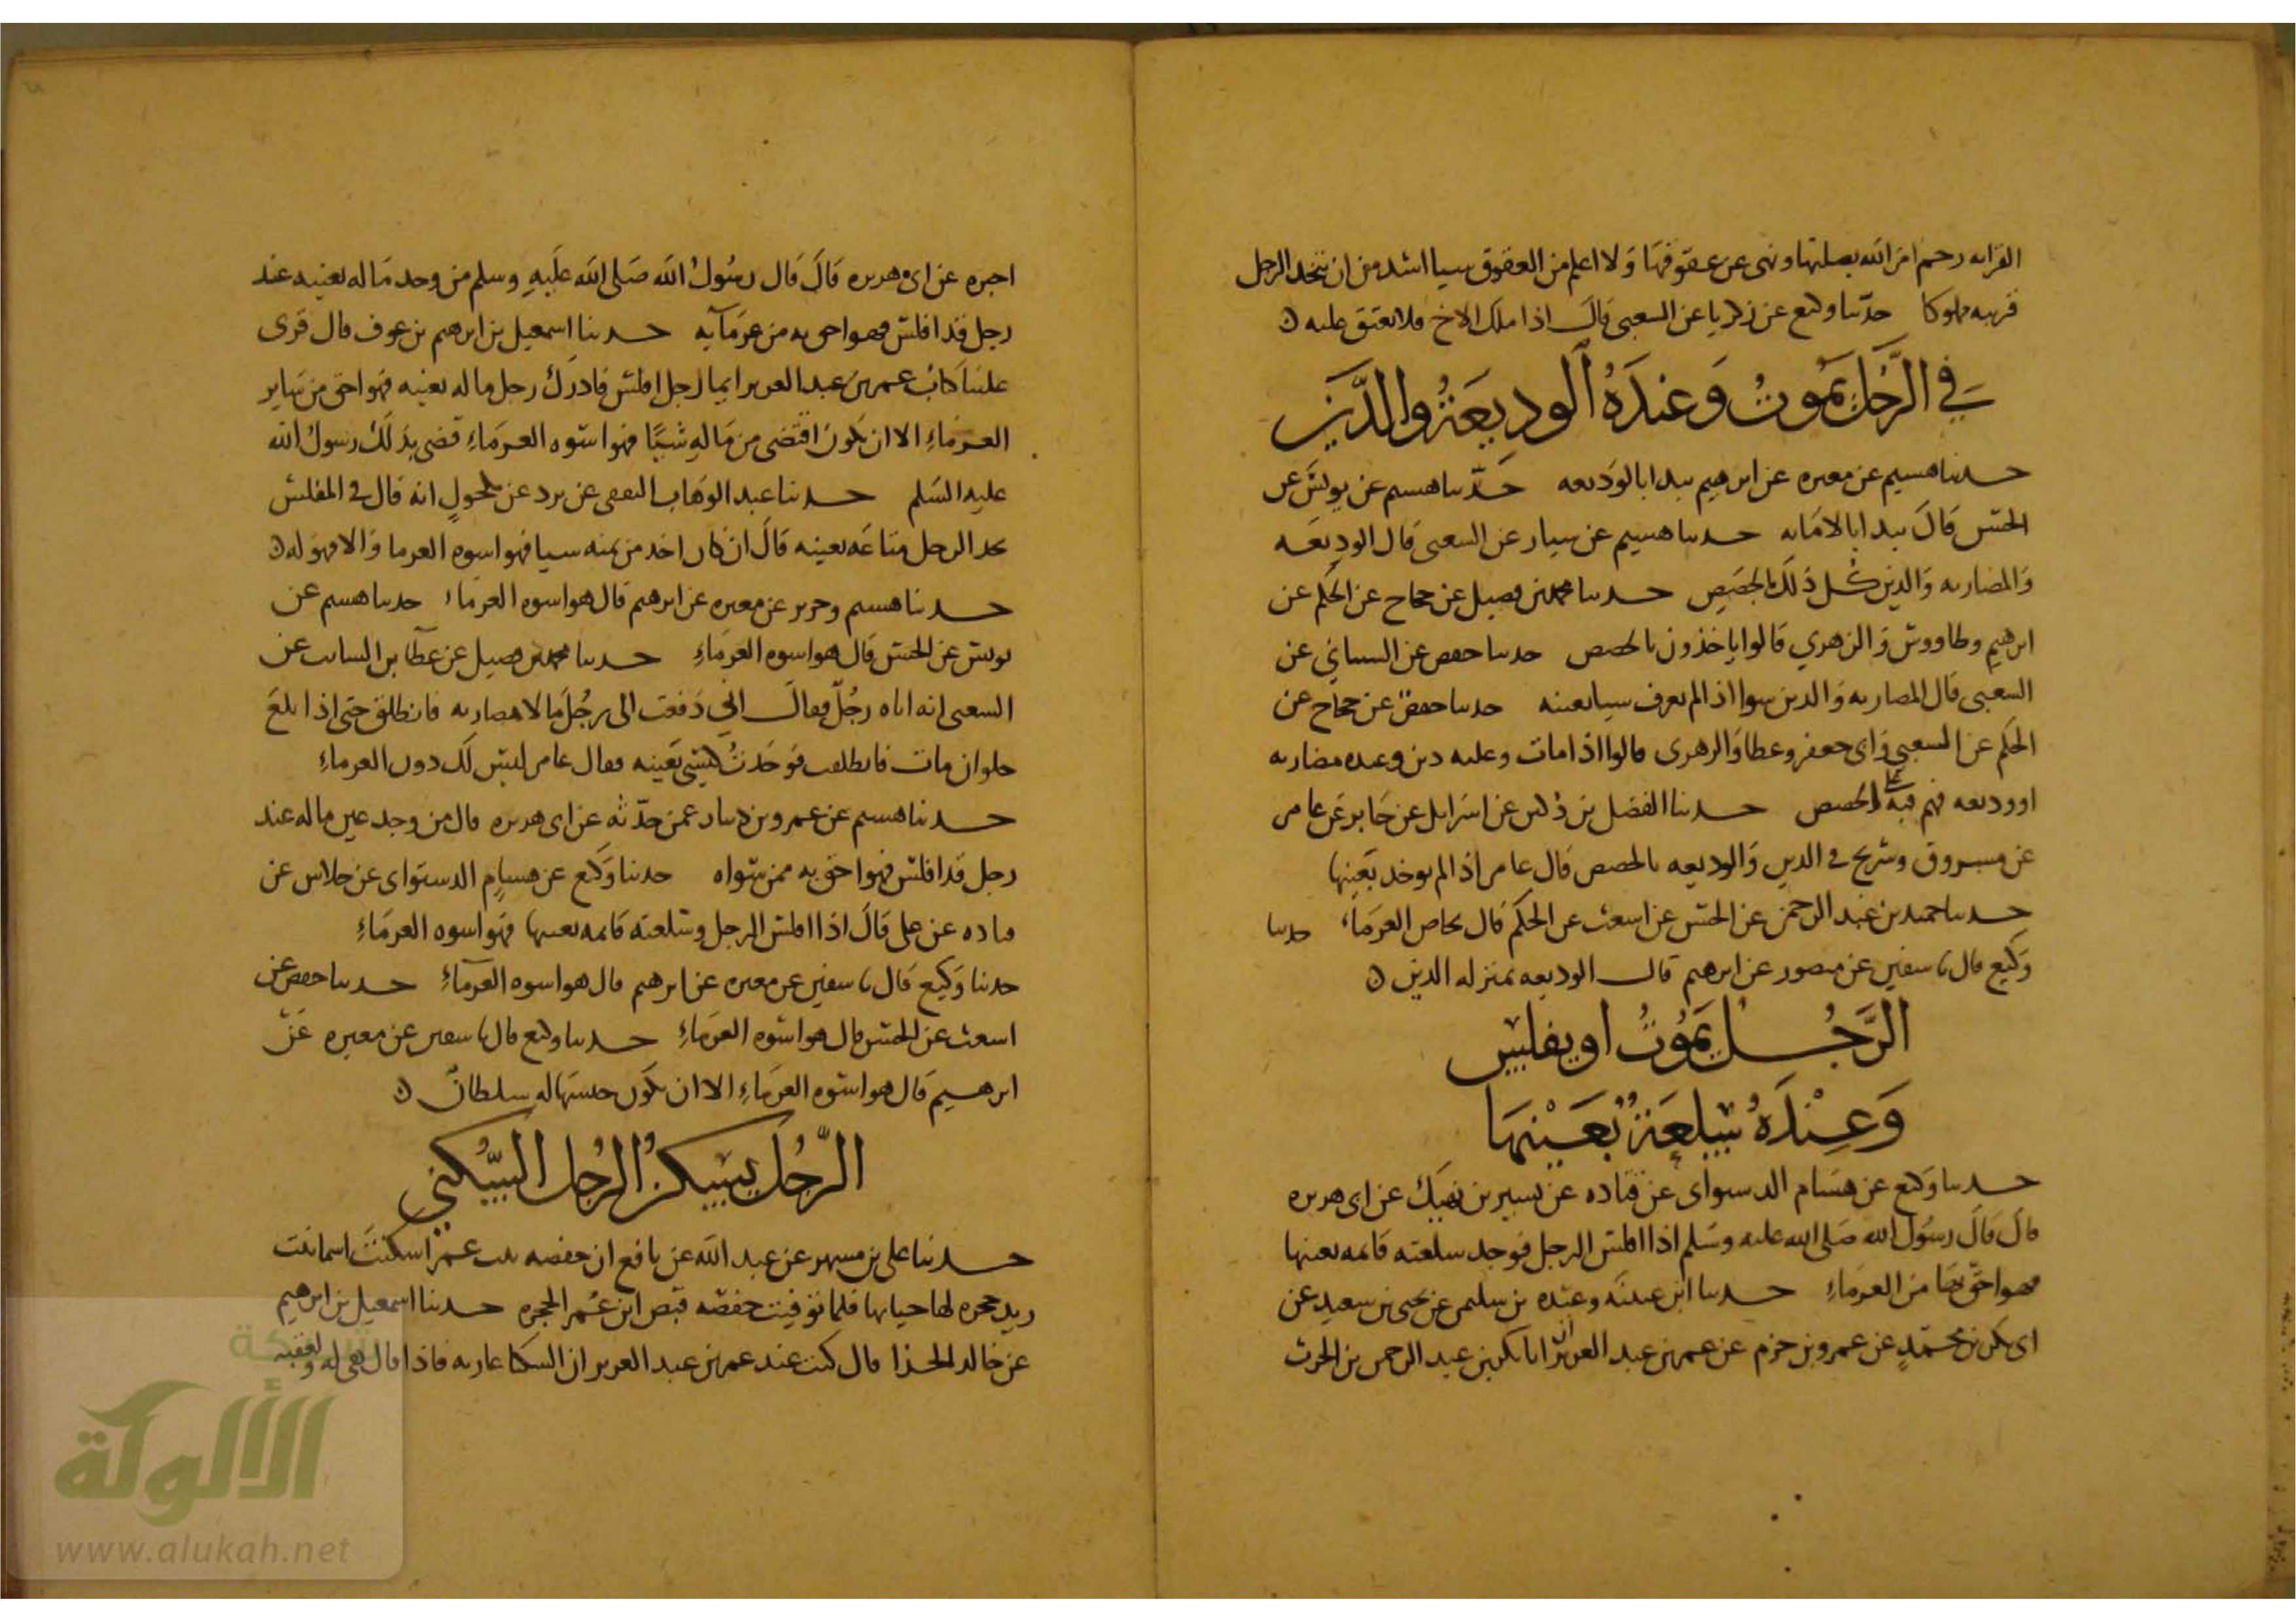 القرابه رحم امر الله بصلتها ونهى عن عقوقها ولا اعلم من العقوق سيا اشد من ان يتخذ الرجل
قريبه مملوكا حدثنا وكيع عن زكريا عن السعبى قال اذا ملك الاخ فلا يعتق عليه
في الرجل يموت وعنده الوديعة والدين
حدثنا هسيم عن معيره عن ابرهيم يبدا بالوديعه حدثنا هسيم عن يونس عن
الحسن قال يبدا بالامانه حدثنا هسيم عن سيار عن السعبى قال الوديعه
والمضاربه والدين كل ذلك بالحصص حدثنا محمد بن فصيل عن حجاج عن الحكم عن
ابرهيم وطاووس والزهري قالوا ياخذون بالحصص حدثنا حفص عن السيباني عن
السعبى قال المضاربه والدين سوا اذا لم يعرف سيا بعينه حدثنا حفص عن حجاج عن
الحكم عن السعبى وابى جعفر وعطا والزهرى قالوا اذا مات وعليه دين وعنده مضاربه
او وديعه فهم فيه على الحصص حدثنا الفضل بن دكين عن اسرايل عن جابر عن عامر
عن مسروق وشريح في الدين والوديعه بالحصص قال عامر اذا لم يوخد بعينها
حدثنا حميد بن عبد الرحمن عن الحسن عن اسعث عن الحكم قال يحاص الغرماء حدثنا
وكيع قال نا سفين عن منصور عن ابرهيم قال الوديعه بمنزله الدين
الرجل يموت او يفليس
وعنده سلعة بعينها
حدثنا وكيع عن هشام الدستواى عن قتاده عن بسير بن نهيك عن ابى هريره
قال قال رسول الله صلى الله عليه وسلم اذا افلس الرجل فوجد سلعته قايمه بعينها
فهو احق بها من الغرماء حدثنا ابن عيينه وعبده بن سليمن عن يحيى بن سعيد عن
ابى بكر بن محمد عن عمرو بن حزم عن عمر بن عبد العزيز ان ابا بكر بن عبد الرحمن بن الحرث
اخبره عن ابى هريره قال قال رسول الله صلى الله عليه وسلم من وجد ماله بعينه عند
رجل قد افلس فهو احق به من غرمايه حدثنا اسمعيل بن ابرهيم بن عوف قال قرى
علينا كتاب عمر بن عبد العزيز ايما رجل افلس فادرك رجل ماله بعينه فهو احق من ساير
الغرماء الا ان يكون اقتضى من ماله شيئا فهو اسوه الغرماء قضى بذلك رسول الله
عليه السلم حدثنا عبد الوهاب الثقفى عن برد عن مكحول انه قال في المفلس
يجد الرجل متاعه بعينه قال ان كان اخد من ثمنه سيا فهو اسوه الغرما والا فهو له
حدثنا هسيم وجرير عن معيره عن ابرهيم قال هو اسوه الغرماء حدثنا هسيم عن
يونس عن الحسن قال هو اسوه الغرماء حدثنا محمد بن فصيل عن عطا بن السايب عن
السعبى انه اتاه رجل فقال انى دفعت الى رجل مالا مضاربه فانطلق حتى اذا بلغ
حلوان مات فانطلقت فوجدت كيسي بعينه فقال عامر ليس لك دون الغرماء
حدثنا هسيم عن عمرو بن دينار عمن حدثه عن ابى هريره قال من وجد عين ماله عند
رجل قد افلس فهو احق به ممن سواه حدثنا وكيع عن هسام الدستواى عن خلاس عن
قتاده عن على قال اذا افلس الرجل وسلعته قايمه بعينها فهو اسوه الغرماء
حدثنا وكيع قال نا سفين عن معيره عن ابرهيم قال هو اسوه الغرماء حدثنا حفص عن
اسعث عن الحسن قال هو اسوه الغرماء حدثنا وكيع قال نا سفين عن معيره عن
ابرهيم قال هو اسوه الغرماء الا ان يكون حبسها له سلطان
الرجل يسكن الرجل السكنى
حدثنا على بن مسهر عن عبد الله عن نافع ان حفصه بنت عمر اسكنت اسما بنت
زيد حجره لها حياتها فلما توفيت حفصه قبض ابن عمر الحجره حدثنا اسمعيل بن ابرهيم
عن خالد الحذا قال كنت عند عمر بن عبد العزيز ان السكنا عاريه فاذا قال هى له ولعقبه
شبكة
الألوكة
www.alukah.net